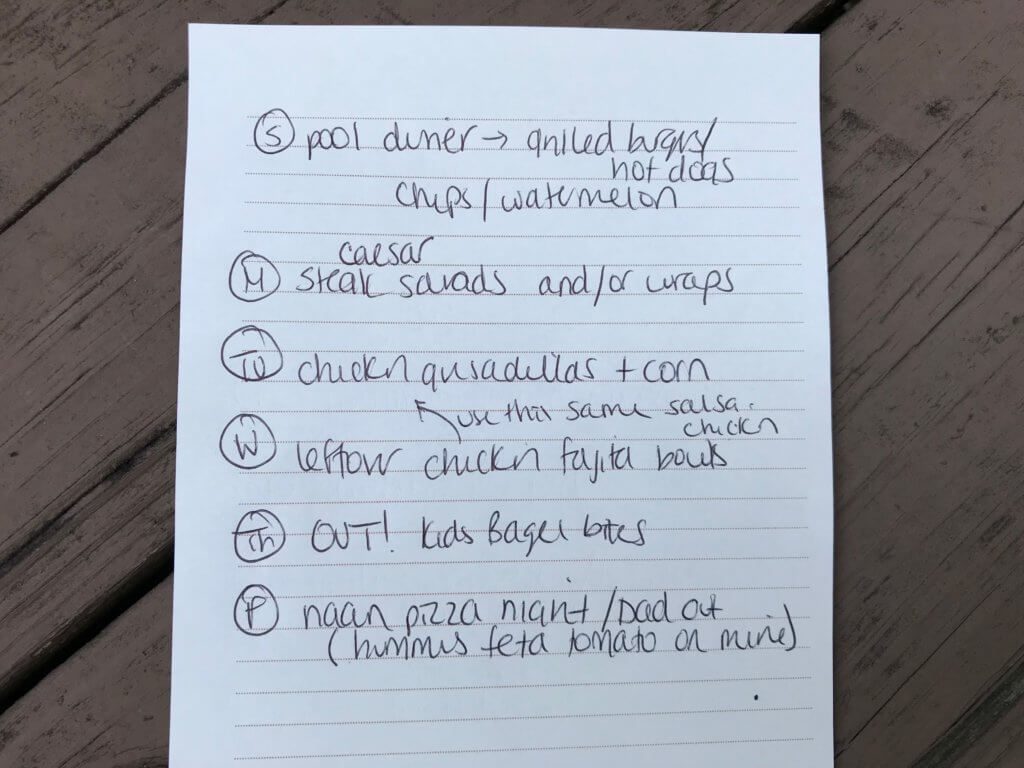 (S) pool dinner → grilled burgers/
hot dogs
chips/watermelon
caesar
(M) steak salads and/or wraps
(Tu) chickn qusadillas + corn
use this same salsa
chickn
(W) leftovr chickn fajita bowls
(Th) OUT! kids Bagel bites
(F) naan pizza night/Dad out
(hummus feta tomato on mine)